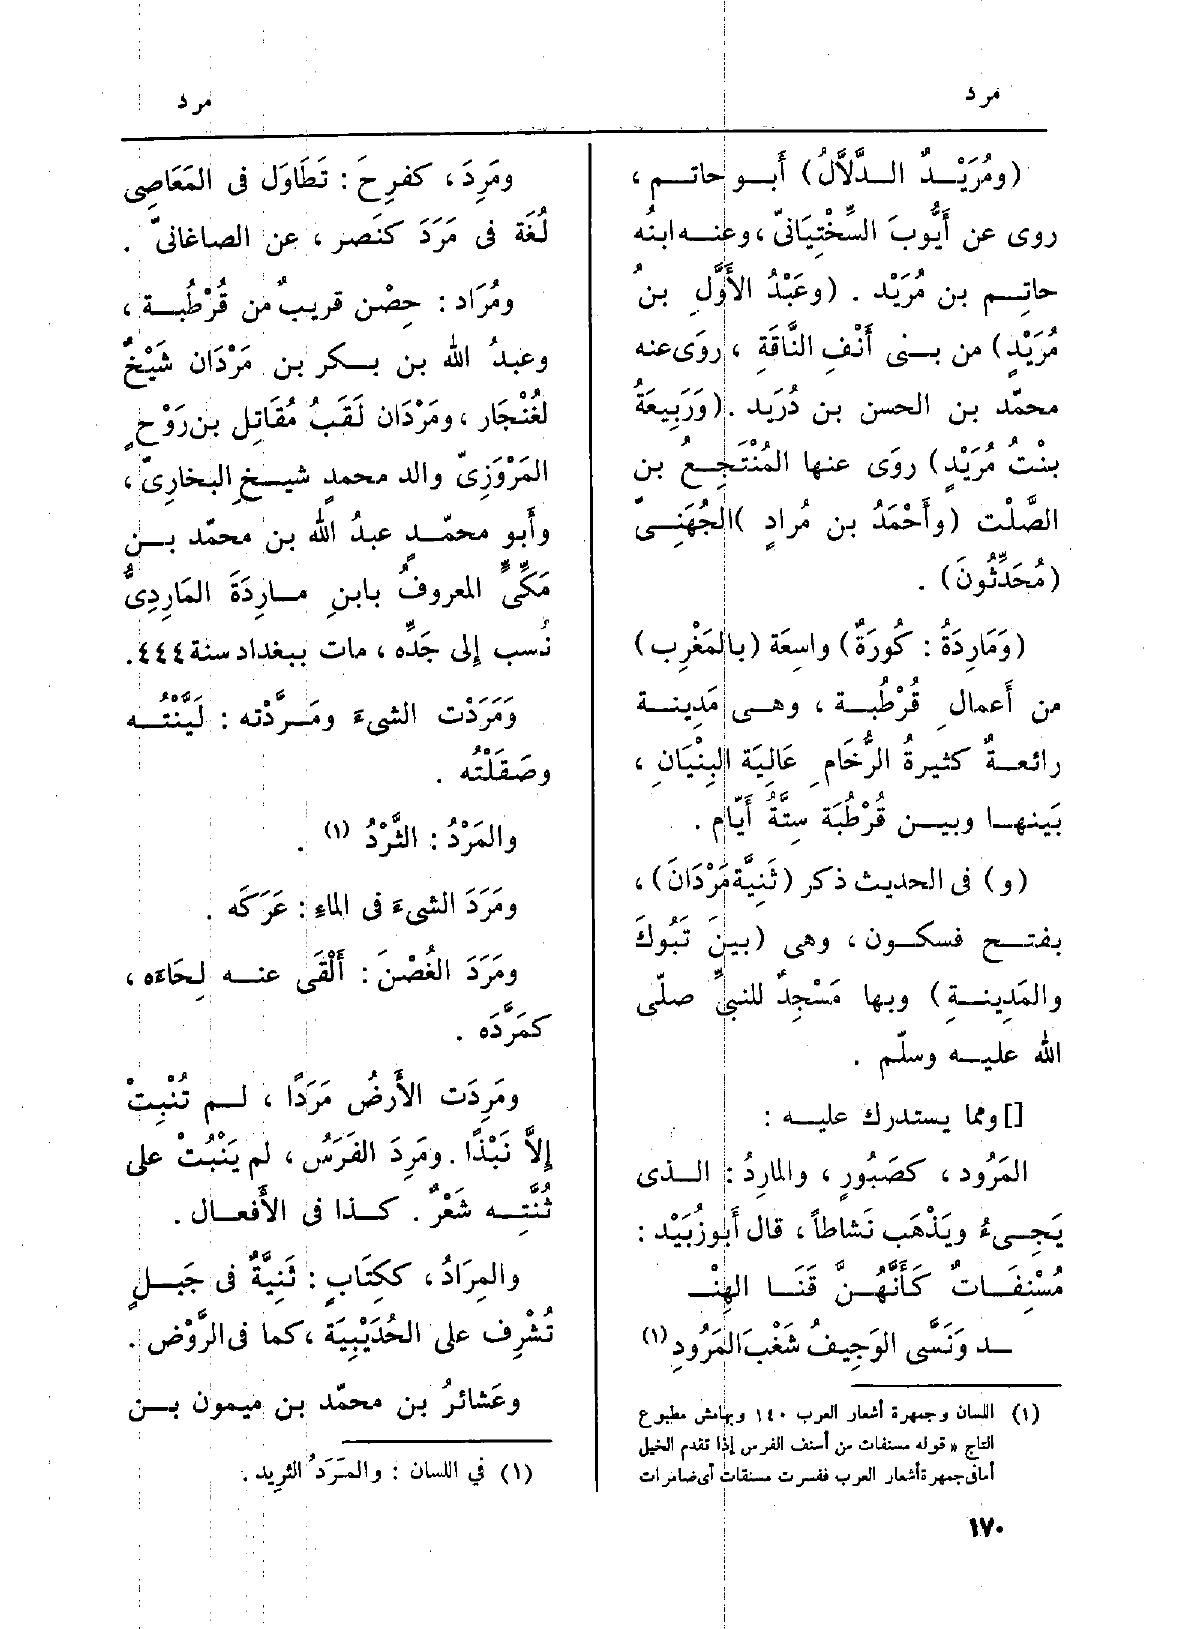 مرد
مرد
(ومُرَيْـدٌ الـدَّلاَّلُ) أَبـو حاتـم ،
روى عن أَيُّوبَ السِّخْتِيَانىّ ، وعنـه ابنُه
حاتِـم بن مُرَيْد . (وعَبْدُ الأَوَّلِ بنُ
مُرَيْدٍ) من بـنى أَنْفِ النَّاقَةِ ، روَى عنه
محمّد بن الحسن بن دُرَيد . (وَرَبِيعَةُ
بنْتُ مُرَيْدٍ) روَى عنها المُنْتَجِـعُ بن
الصَّلْت (وأَحْمَدُ بن مُرادٍ ) الجُهَنِـىّ
(مُحَدِّثُونَ) .
(وَمَارِدَةُ : كُورَةٌ) واسِعَة (بالمَغْرِب)
من أَعمالِ قُرْطُبـة ، وهـى مَدِينـة
رائعـةٌ كثيرةُ الرُّخَامِ عَالِيَة البِنْيَانِ ،
بَينهـا وبيـن قُرْطُبَة سِتَّةُ أَيّام .
(و) فى الحديث ذكر (ثَنِيَّة مَرْدَانَ) ،
بفتـح فسكـون ، وهى (بينَ تَبُوكَ
والمَدِينـةِ) وبها مَسْجِدٌ للنبىِّ صلّى
الله عليـه وسلّم .
[] ومما يستدرك عليـه :
المَرُود ، كصَبُورٍ ، والمارِدُ : الـذى
يَجِـىءُ ويَذْهَب نَشاطاً ، قال أَبو زُبَيْد :
مُسْنِفَـاتٌ كَأَنَّهُـنَّ قَنَـا الهِنْـ
ـد وَنَسَّى الوَجِيفُ شَغْبَ المَرُودِ (١)
(١) اللسان وجمهرة أشعار العرب ١٤٠ وبهامش مطبوع
التاج « قوله مسنفات من أسنف الفرس إذا تقدم الخيل
أما فى جمهرة أشعار العرب ففسرت مسنفات أى ضامرات
١٧٠
ومَرِدَ ، كفرِحَ : تَطَاوَل فى المَعَاصِى
لُغَة فى مَرَدَ كنَصر ، عن الصاغانىّ .
ومُرَاد : حِصْن قريبٌ من قُرْطُبـة ،
وعبدُ الله بن بـكر بن مَرْدَان شَيْخٌ
لغُنْجَار ، ومَرْدَان لَقَبُ مُقَاتِل بن رَوْحٍ
المَرْوَزِىّ والد محمدٍ شيـخِ البخارِىّ ،
وأَبو محمّـدٍ عبدُ الله بن محمّد بـن
مَكِّىٍّ المعروفُ بابنِ مـارِدَةَ المَارِدِىُّ
نُسب إِلى جَدِّه ، مات ببغداد سنة ٤٤٤.
ومَرَدْت الشىءَ ومَـرَّدْته : لَيَّنْتُـه
وصَقَلْتُه .
والمَرْدُ : الثَّرْدُ (١) .
ومَرَدَ الشىءَ فى الماءِ : عَرَكَه .
ومَرَدَ الغُصْنَ : أَلْقَى عنـه لِحَاءَه ،
كمَرَّدَه .
ومَرِدَت الأَرضُ مَرَدًا ، لـم تُنْبِتْ
إِلاَّ نَبْذًا . ومَرِدَ الفَرَسُ ، لم يَنْبُتْ على
ثُنَّتِـه شَعْرٌ . كـذا فى الأَفعـال .
والمِرَادُ ، ككِتَابٍ : ثَنِيَّةٌ فى جَبـلٍ
تُشْرِف على الحُدَيْبِيَة ، كما فى الرَّوْض .
وعَشائرُ بن محمّد بن ميمون بـن
(١) في اللسان : والمَرْدُ الثريد .